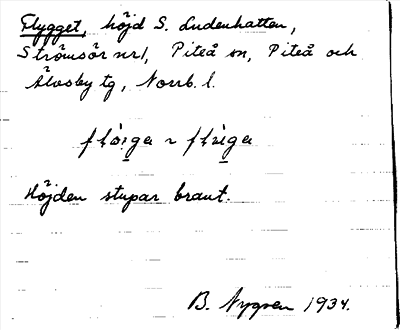 Flygget, höjd S. Ludenhatten,
Strömsör nr1, Piteå sn, Piteå och
Älvsby tg, Norrb. l.
Höjden stupar brant.
B. Nygren 1934.